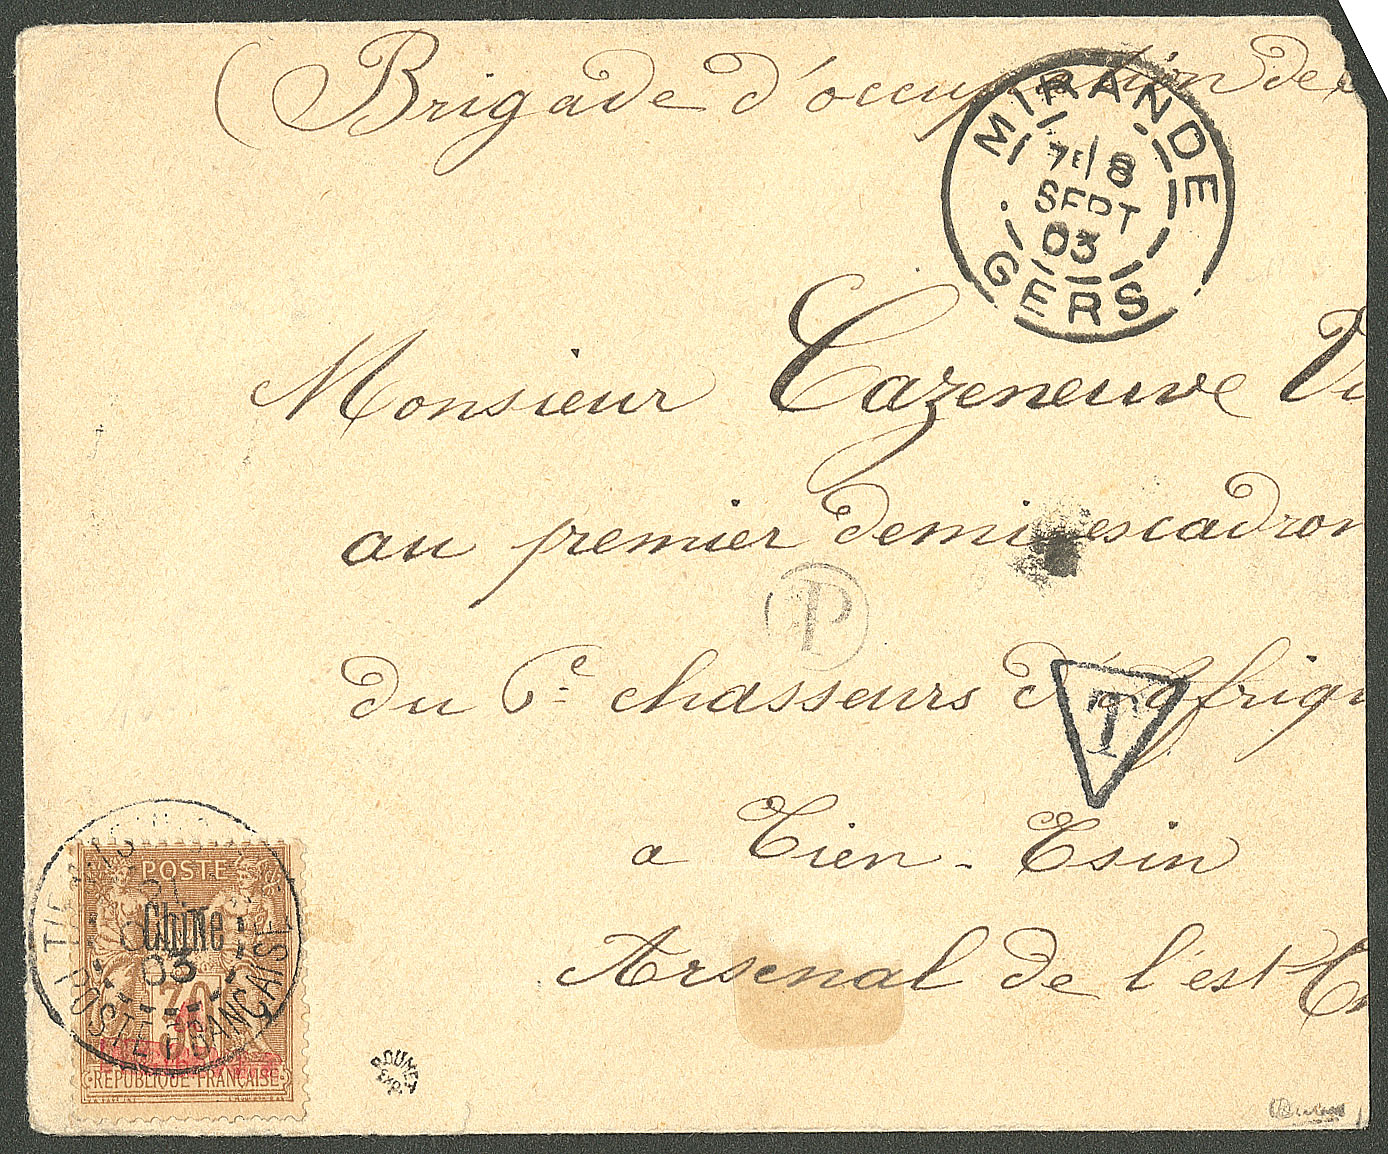 (Brigade d'occupation de
MIRANDE
7E 8
SEPT
03
GERS
Monsieur Cazeneuve Vi
au premier demi escadron
P
du 6e chasseurs d'Afriqu
T
a Tien-Tsin
Arsenal de l'est Ch
POSTE
Chine
03
30
POSTE FRANÇAISE
REPUBLIQUE FRANÇAISE
ROUMET
EXP.